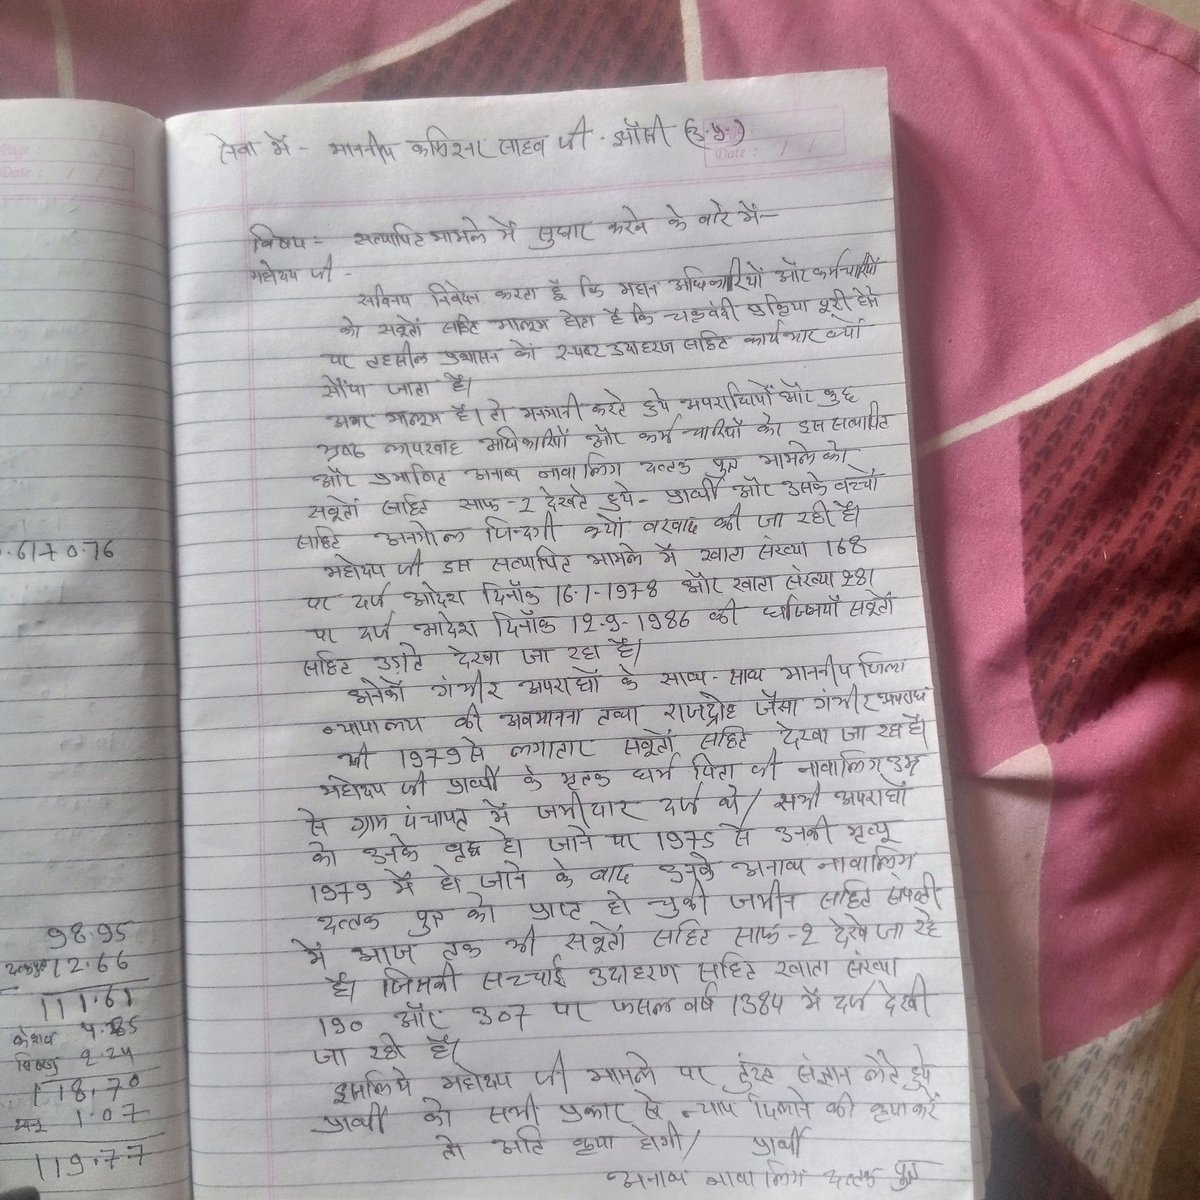 सेवा में - माननीय कमिश्नर साहब जी - झाँसी (उ.प्र.)
Date : / /
विषय = सत्यापित मामले में सुधार करने के बारे में -
महोदय जी -
सविनय निवेदन करता हूँ कि महान अधिकारियों और कर्मचारियों
को सबूतों सहित मालूम होता है कि चकबंदी प्रक्रिया पूरी होने
पर तहसील प्रशासन को स्पष्ट उदाहरण सहित कार्यभार क्यों
सौंपा जाता है।
अगर मालूम है। तो मनमानी करते हुये अपराधियों और कुछ
लापरवाह अधिकारियों और कर्मचारियों को इस सत्यापित
और प्रमाणित अनाथ नाबालिग दत्तक पुत्र मामले को
सबूतों सहित साफ-२ देखते हुये - प्रार्थी और उसके बच्चों
सहित अनमोल जिन्दगी क्यों बरबाद की जा रही है।
महोदय जी इस सत्यापित मामले में खाता संख्या 168
पर दर्ज आदेश दिनाँक 16-1-1978 और खाता संख्या 281
पर दर्ज आदेश दिनाँक 12-9-1986 की धज्जियाँ सबूतों
सहित उड़ाते देखा जा रहा है।
अनेकों गंभीर अपराधों के साथ-साथ माननीय जिला
न्यायालय की अवमानना तथा राजद्रोह जैसा गंभीर अपराध
भी 1979 से लगातार सबूतों सहित देखा जा रहा है।
महोदय जी प्रार्थी के मृतक धर्म पिता जी नाबालिग उम्र
से ग्राम पंचायत में जमीदार दर्ज थे / सभी अपराधों
को उनके बृद्ध हो जाने पर 1975 से उनकी मृत्यू
1979 में हो जाने के बाद उनके अनाथ नाबालिग
दत्तक पुत्र को प्राप्त हो चुकी जमीन सहित सम्पत्ती
में आज तक भी सबूतों सहित साफ-२ देखे जा रहे
है। जिसकी सच्चाई उदाहरण सहित खाता संख्या
190 और 307 पर फसल वर्ष 1384 में दर्ज देखी
जा रही है।
इसलिये महोदय जी मामले पर तुरंत संज्ञान लेते हुये
प्रार्थी को सभी प्रकार से न्याय दिलाने की कृपा करें
तो अति कृपा होगी / प्रार्थी
अनाथ नाबालिग दत्तक पुत्र
6170.76
98.95
12.66
111.61
केशव 4.85
विष्णु 2.24
118.70
1.07
119.77